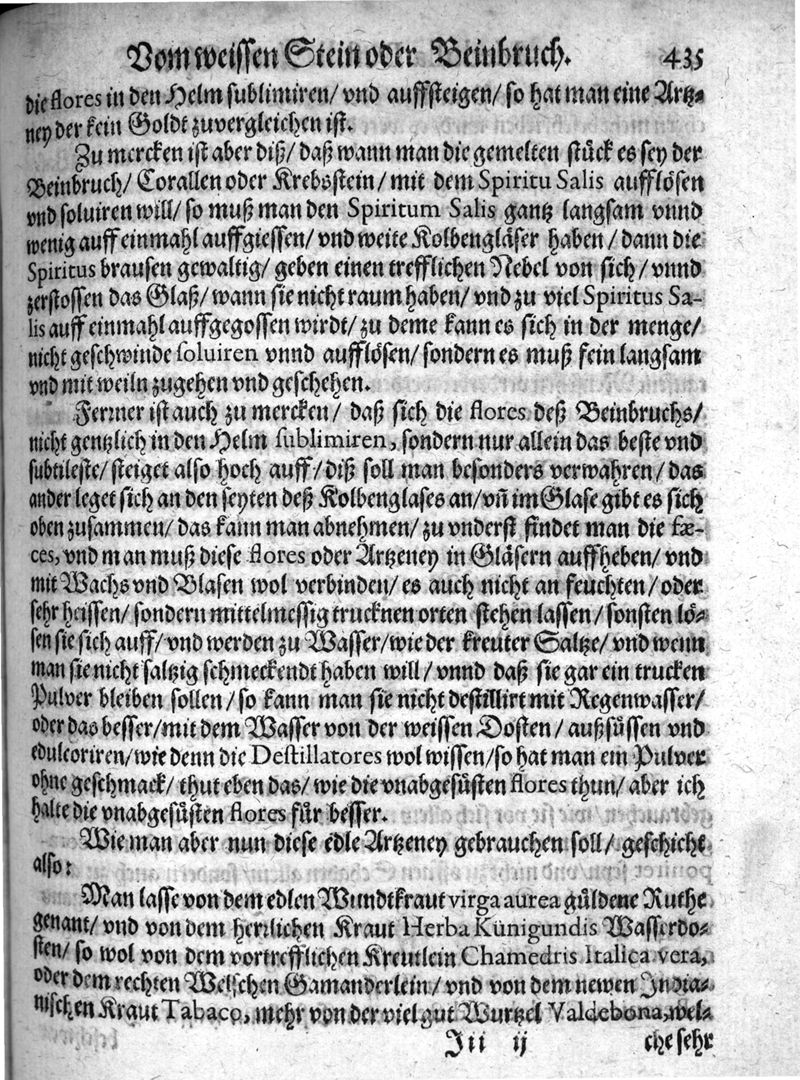 Vom weissen Stein oder Beinbruch. 435
die flores in den Helm sublimiren/ vnd auffsteigen/ so hat man eine Artz-
ney der kein Goldt zuvergleichen ist.
Zu mercken ist aber diß/ daß wann man die gemelten stück es sey der
Beinbruch/ Corallen oder Krebsstein/ mit dem Spiritu Salis aufflösen
vnd soluiren will/ so muß man den Spiritum Salis gantz langsam vnnd
wenig auff einmahl auffgiessen/ vnd weite Kolbengläser haben/ dann die
Spiritus brausen gewaltig/ geben einen trefflichen Nebel von sich/ vnnd
zerstossen das Glaß/ wann sie nicht raum haben/ vnd zu viel Spiritus Sa-
lis auff einmahl auffgegossen wirdt/ zu deme kann es sich in der menge/
nicht geschwinde soluiren vnnd aufflösen/ sondern es muß fein langsam
vnd mit weiln zugehen vnd geschehen.
Ferrner ist auch zu mercken/ daß sich die flores deß Beinbruchs/
nicht gentzlich in den Helm sublimiren, sondern nur allein das beste vnd
subtileste/ steiget also hoch auff/ diß soll man besonders verwahren/ das
ander leget sich an den seyten deß Kolbenglases an/ vñ im Glase gibt es sich
oben zusammen/ das kann man abnehmen/ zu vnderst findet man die fæ-
ces, vnd man muß diese flores oder Artzeney in Gläsern auffheben/ vnd
mit Wachs vnd Blasen wol verbinden/ es auch nicht an feuchten/ oder
sehr heissen/ sondern mittelmessig trucknen orten stehen lassen/ sonsten lö-
sen sie sich auff/ vnd werden zu Wasser/ wie der kreuter Saltze/ vnd wenn
man sie nicht saltzig schmeckendt haben will/ vnnd daß sie gar ein trucken
Pulver bleiben sollen/ so kann man sie nicht destillirt mit Regenwasser/
oder das besser/ mit dem Wasser von der weissen Dosten/ außsüssen vnd
edulcoriren/ wie denn die Destillatores wol wissen/ so hat man ein Pulver
ohne geschmack/ thut eben das/ wie die vnabgesüsten flores thun/ aber ich
halte die vnabgesüsten flores für besser.
Wie man aber nun diese edle Artzeney gebrauchen soll/ geschicht
also:
Man lasse von dem edlen Wundtkraut virga aurea güldene Ruthe
genant/ vnd von dem herrlichen Kraut Herba Künigundis Wasserdo-
sten/ so wol von dem vortrefflichen Kreutlein Chamedris Italica vera,
oder dem rechten Welschen Gamanderlein/ vnd von dem newen India-
nischen Kraut Tabaco, mehr von der viel gut Wurtzel Valdebona, wel-
Iii ij che sehr